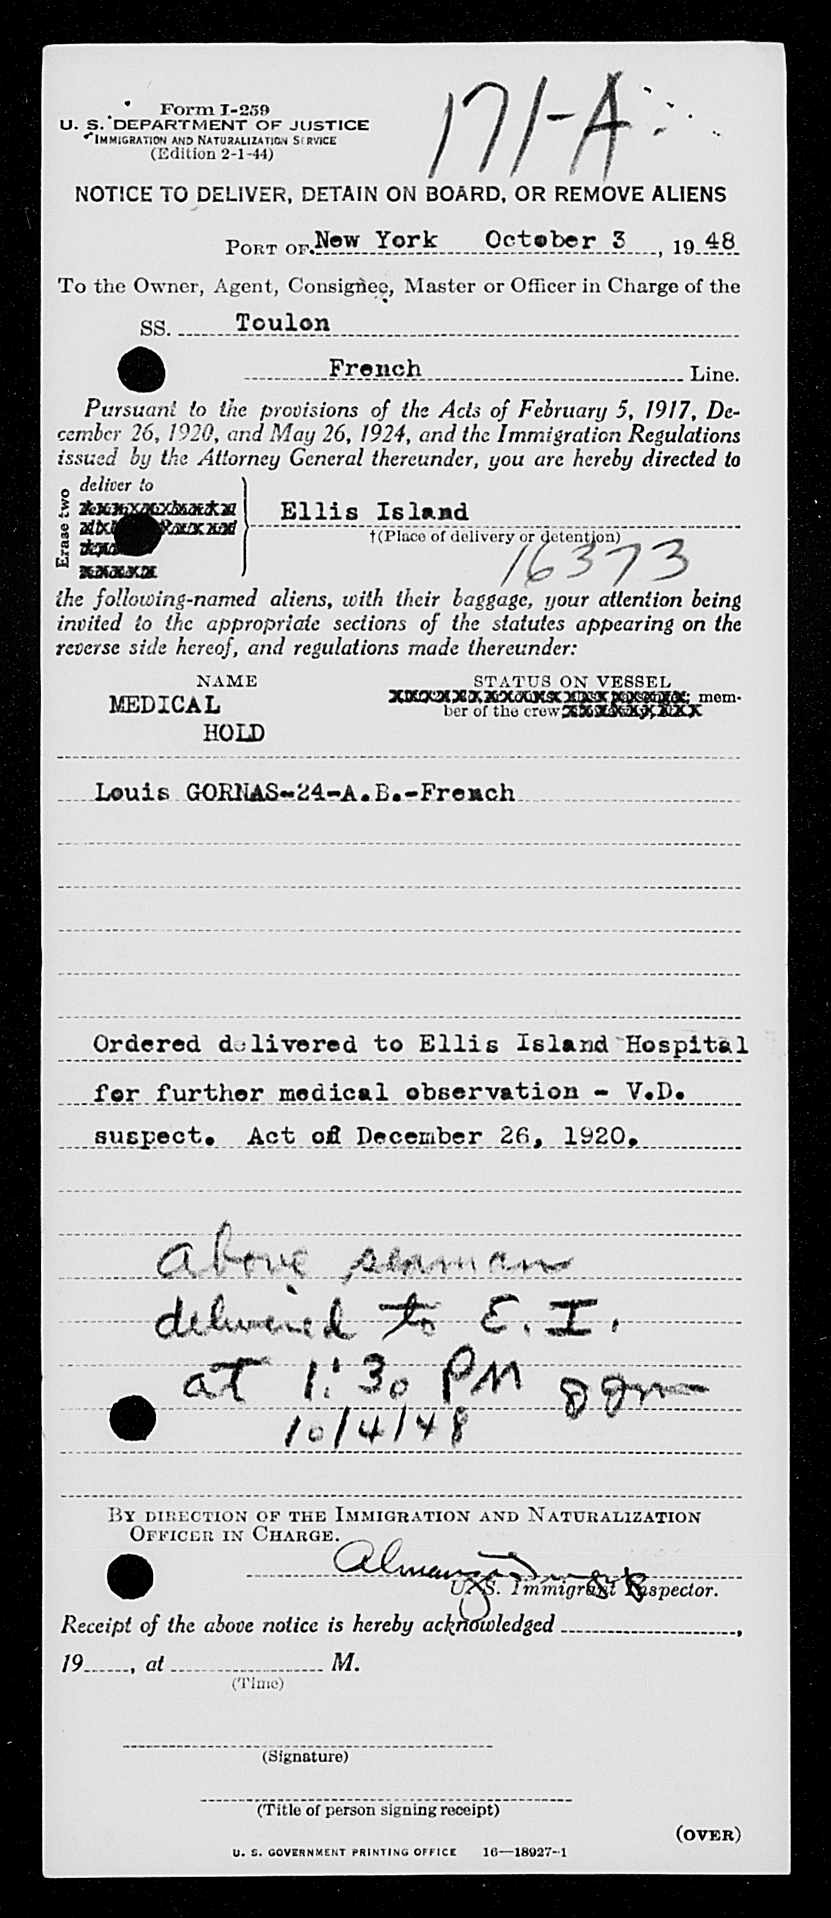 Form I-259
U. S. DEPARTMENT OF JUSTICE
IMMIGRATION AND NATURALIZATION SERVICE
(Edition 2-1-44)
171-A
NOTICE TO DELIVER, DETAIN ON BOARD, OR REMOVE ALIENS
PORT OF New York October 3, 1948
To the Owner, Agent, Consignee, Master or Officer in Charge of the
SS. Toulon
French Line.
Pursuant to the provisions of the Acts of February 5, 1917, De-
cember 26, 1920, and May 26, 1924, and the Immigration Regulations
issued by the Attorney General thereunder, you are hereby directed to
Erase two
deliver to
Ellis Island
†(Place of delivery or detention)
16373
the following-named aliens, with their baggage, your attention being
invited to the appropriate sections of the statutes appearing on the
reverse side hereof, and regulations made thereunder:
NAME STATUS ON VESSEL
MEDICAL mem-
ber of the crew
HOLD
Louis GORNAS-24-A.B.-French
Ordered delivered to Ellis Island Hospital
for further medical observation - V.D.
suspect. Act of December 26, 1920.
above seaman
delivered to E. I.
at 1:30 PM
10/4/48
BY DIRECTION OF THE IMMIGRATION AND NATURALIZATION
OFFICER IN CHARGE.
U. S. Immigrant Inspector.
Receipt of the above notice is hereby acknowledged ,
19 , at M.
(Time)
(Signature)
(Title of person signing receipt)
(OVER)
U. S. GOVERNMENT PRINTING OFFICE 16—18927-1